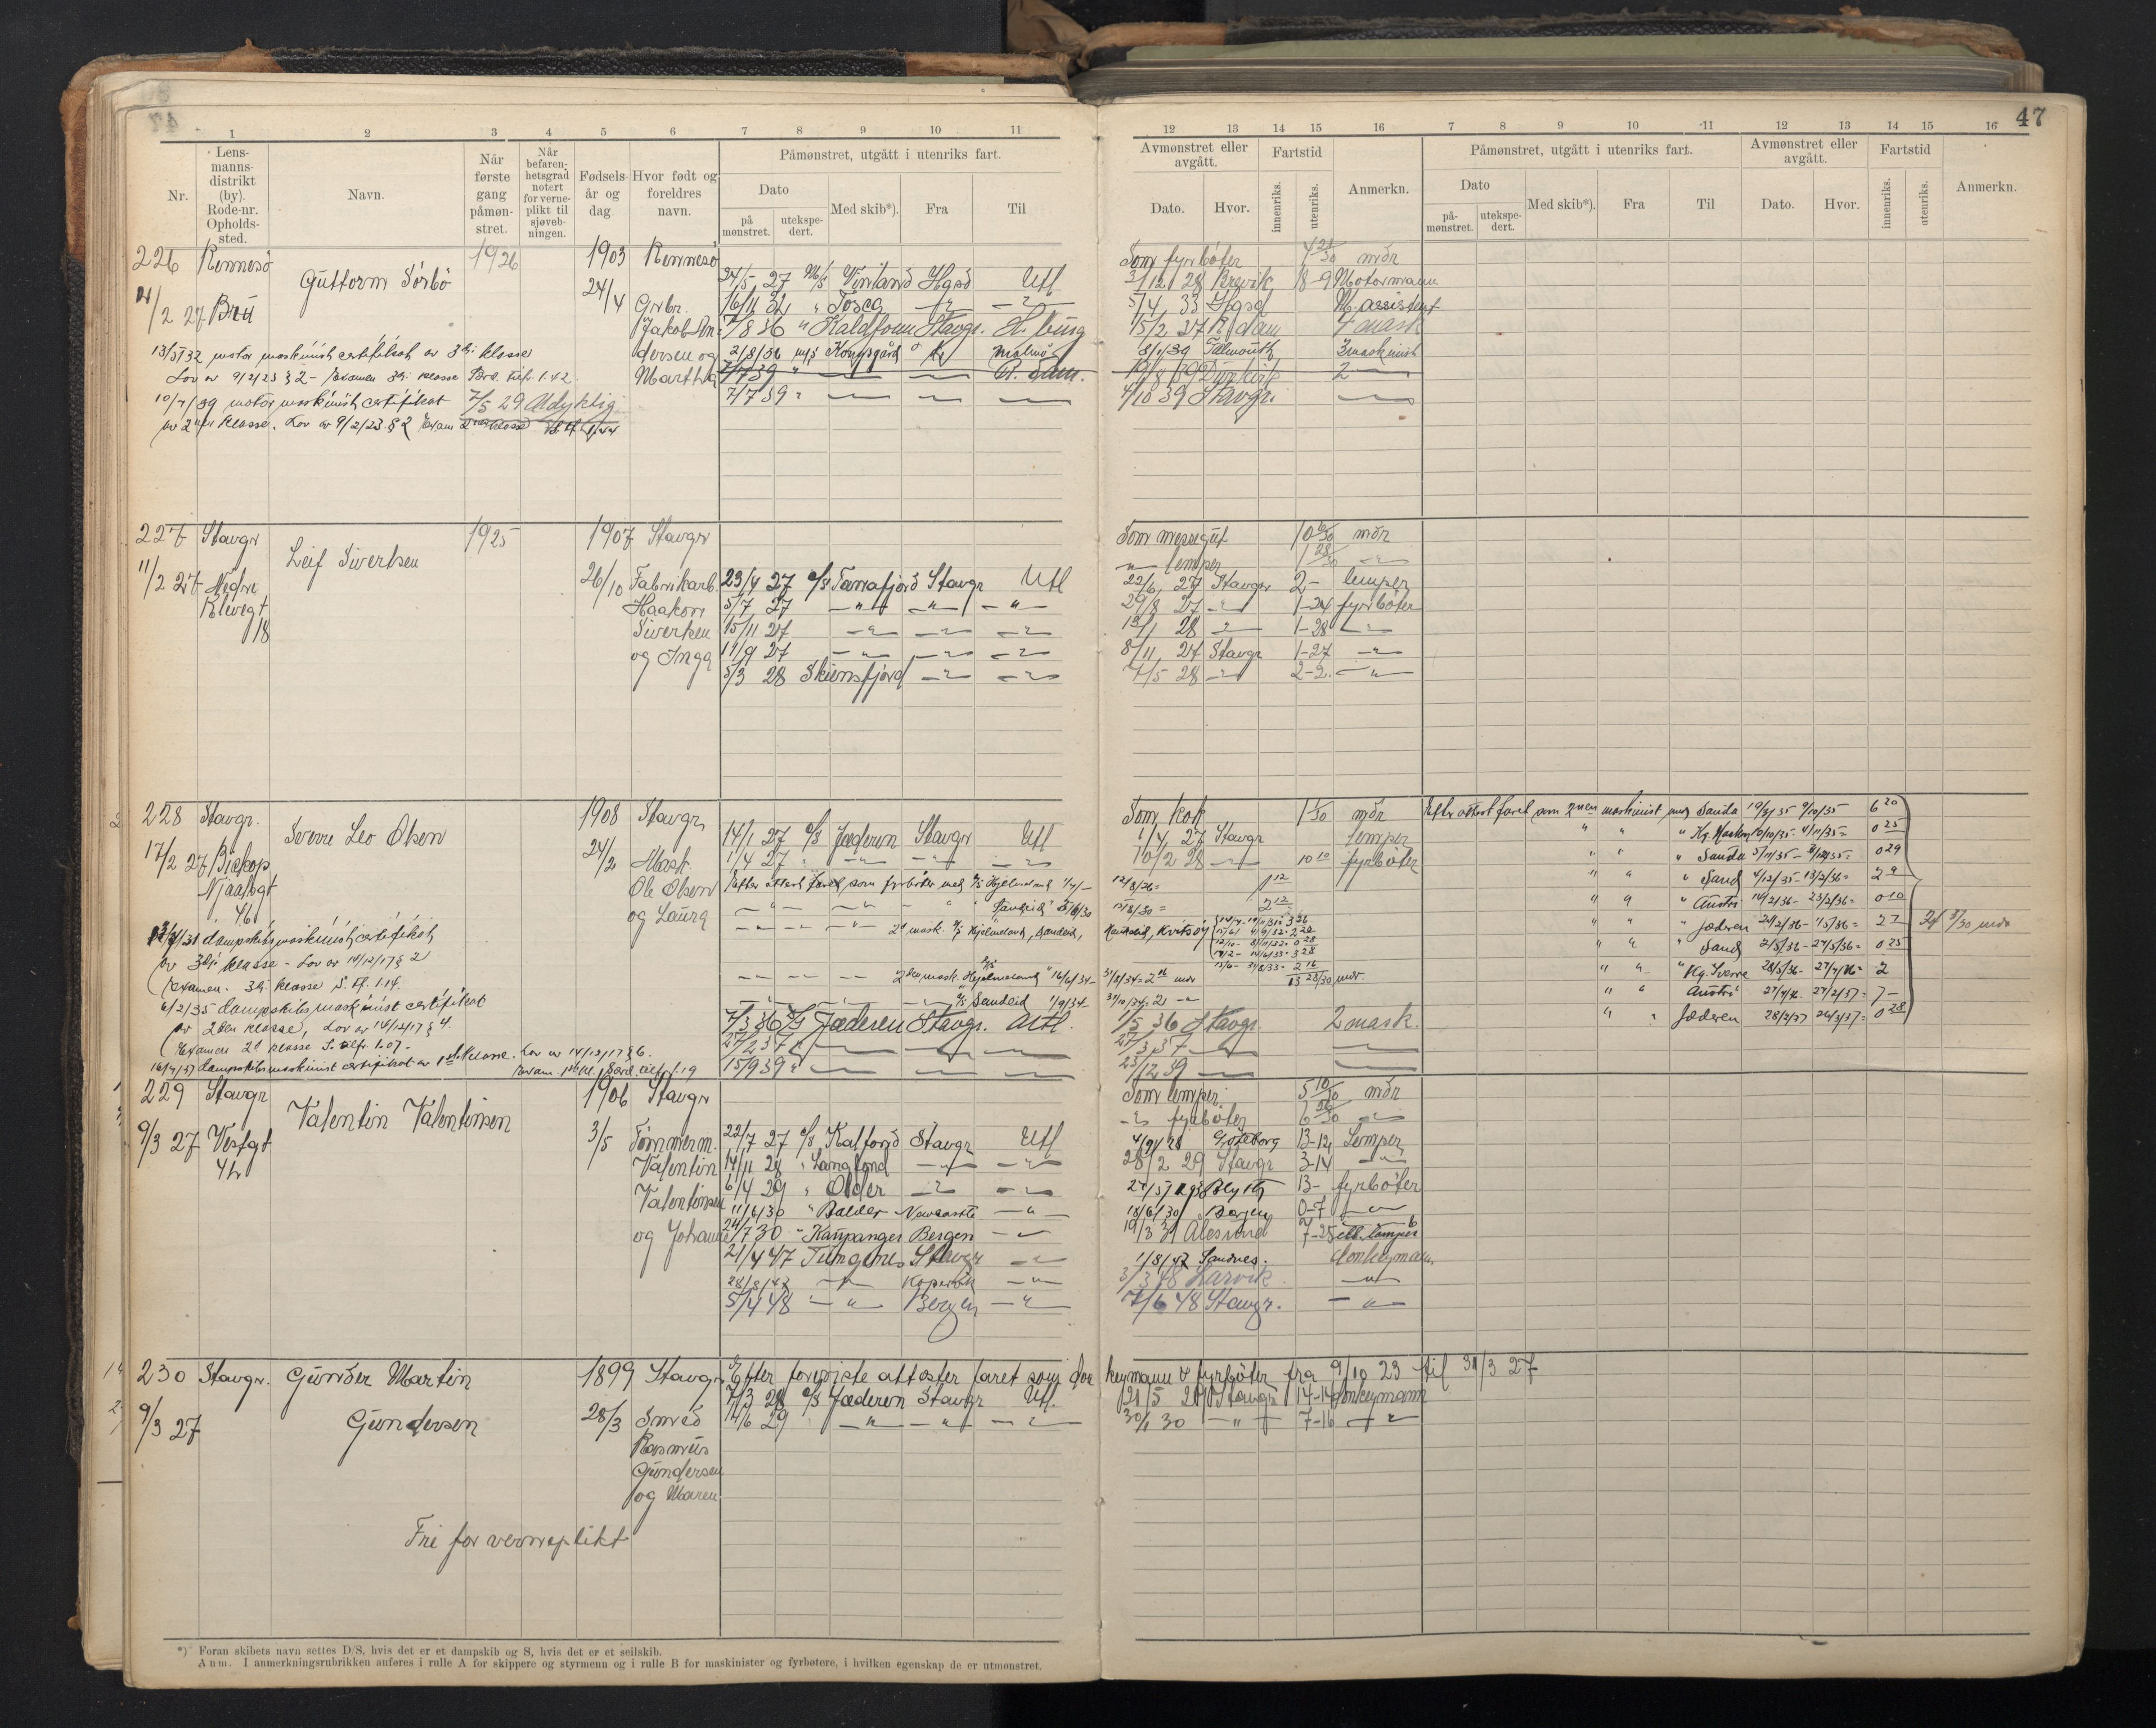 47
1 2 3 4 5 6 7 8 9 10 11
Nr.
Lens-
manns-
distrikt
(by).
Rode-nr.
Opholds-
sted.
Navn.
Når
første
gang
påmøn-
stret.
Når
befaren-
hetsgrad
notert
for verne-
plikt til
sjøveb-
ningen.
Fødsels-
år og
dag
Hvor født og
foreldres
navn.
Påmønstret, utgått i utenriks fart.
Dato
på
mønstret.
utekspe-
dert.
Med skib*).
Fra
Til
12 13 14 15 16 7 8 9 10 11 12 13 14 15 16
Avmønstret eller
avgått.
Dato.
Hvor.
Fartstid
innenriks.
utenriks.
Anmerkn.
Påmønstret, utgått i utenriks fart.
Dato
på-
mønstret.
utekspe-
dert.
Med skib*).
Fra
Til
Avmønstret eller
avgått.
Dato.
Hvor.
Fartstid
innenriks.
utenriks.
Anmerkn.
226 Rennesö 1926 1903 Rennesö Som fyrböter mdr
Guttorm Sörbö
24/5 27 M/S Vinland Hgsd Utl 3/12 28 Brevik 18-9 Motormann
2/2 27 Bru 24/4 Grbr. 16/11 32 " Tosca 5/4 33 Hgsd M. assistent
Jakob An- 7/8 36 " Kaldfonn Stavgr. H. burg 15/2 37 R dam 4 mask
13/5 32 motor maskinist certifikat av 3dje klasse
dersen og 21/8/36 m/s Kongsgård Malmö 8/1/39 Falmouth 3 maskinist
Lov av 9/2/23 § 2 - Examen 3dje klasse
Martha 7/7 39 " R. dam. 19/8 39 Dunkirk 2
10/7/39 motor maskinist certifikat 7/5 29 Udyktig
7/7 39 " 4/10 39 Stavgr.
av 2nen klasse. Lov av 9/2/23 § 2
227 Stavgr 1925 1907 Stavgr Som messegut 10 6/30 mdr
Leif Sivertsen
" lemper 1 28/30
11/2 27 Nedre 26/10 Fabrikarb. 23/4 27 D/S Tanafjord Stavgr Utl 22/6 27 Stavgr 2- lemper
Klevegt Haakon 5/7 27 " " " 29/8 27 " 1-24 fyrböter
18 Sivertsen 15/11 27 " " " 12/1 28 " 1-28 "
og Inga 11/9 27 " " " 8/11 27 Stavgr 1-27 "
5/3 28 Skiensfjord " " 7/5 28 " 2-2. "
228 Stavgr. 1908 Stavgr Som kok mdr
Sverre Leo Olsen
14/1 27 D/S Jæderen Stavgr Utl 1/4 27 Stavgr lemper
17/2 27 Biskop 24/2 Mask 1/4 27 " " " 10/2 28 " 10 10 fyrböter
Njaalsgt Ole Olsen Efter attest faret som fyrböter med D/S Hjelmeland
46 og Laura
" " " " Sandeid
" " " 2d mask. D/S Hjelmeland, Sandeid, Kvitsöy
dampskibsmaskinist certifikat
av 3dje klasse - Lov av 14/12/17 § 2
Examen. 3dje klasse S.A. 1.14.
2den mask. Hjelmeland 16/6/34- 31/8/34 = 2 16 mdr 13 28/30 mdr.
6/2/35 dampskibsmaskinist certifikat
D/S Sandeid 1/9/34- 31/10/34 = 2
av 2den klasse, Lov av 14/12/17 § 4.
7/3 36 D/S Jæderen Stavgr. Utl. 1/5 36 Stavgr. 2 mask.
Examen 2d klasse
27/2 37 "
16/4/37 dampskibsmaskinist certifikat av 1ste klasse. Lov av 14/12/17 § 6.
15/9 39 " 23/12 39
Efter attest faret som 2nen maskinist med Sanda 19/3/35 9/10/35 6 20
" " " Kg. Haakon 10/10/35 - 4/11/35 = 0 25
" " " Sauda 5/11/35 - 3/12/35 = 0 29
" " " Sand 4/12/35 - 13/2/36 = 2 9
" " " Austri 14/2/36 - 23/2/36 = 0 10
" " " Jæderen 24/2/36 - 1/5/36 = 2 7
" " " Sand 2/5/36 - 27/5/36 = 0 25
" " " Kg. Sverre 28/5/36 - 27/7/36 = 2
" " " Austri 27/2/37 = 7 -
" " " Jæderen 28/2/37 26/3/37 = 0 28
mdr
229 Stavgr 1906 Stavgr Som lemper 5 10/30 mdr
Valentin Valentinsen
" fyrböter
9/3 27 Vestgt 3/5 Tömmerm. 22/7 27 D/S Kalfond Stavgr Utl Göteborg 13-12 Lemper
42 Valentin 14/11 28 " Langfond " " 28/2 29 Stavgr 3-14 "
Valentinsen 6/4 29 " Older " " Blyth 13- fyrböter
11/6/30 " Balder Newcastle " 18/6/30 Bergen 0-7 "
og Johanne 24/7 30 " Kaupanger Bergen " 19/3 31 Alesund lemper
21/4 47 Tungenes Stavgr " 1/8/47 Sandnes. donkeymann
28/8/47 " Kopervik " 3/3 48 Larvik "
5/4 48 " Bergen " 7/6 48 Stavgr. "
230 Stavgr. Gunder Martin 1899 Stavgr Efter foreviste attester faret som donkeymann & fyrböter fra 9/10 23 til 31/3 27
7/3 28 D/S Jæderen Stavgr Utl. 21/5 29 Stavgr 14-14 donkeymann
9/3 27 Gundersen 28/3 Smed 14/6 29 " " " 30/1 30 " 7-16 "
Rasmus
Gundersen
og Maren
Fri for verneplikt
*) Foran skibets navn settes D/S, hvis det er et dampskib og S, hvis det er et seilskib.
Anm. I anmerkningsrubrikken anføres i rulle A for skippere og styrmenn og i rulle B for maskinister og fyrbøtere, i hvilken egenskap de er utmønstret.